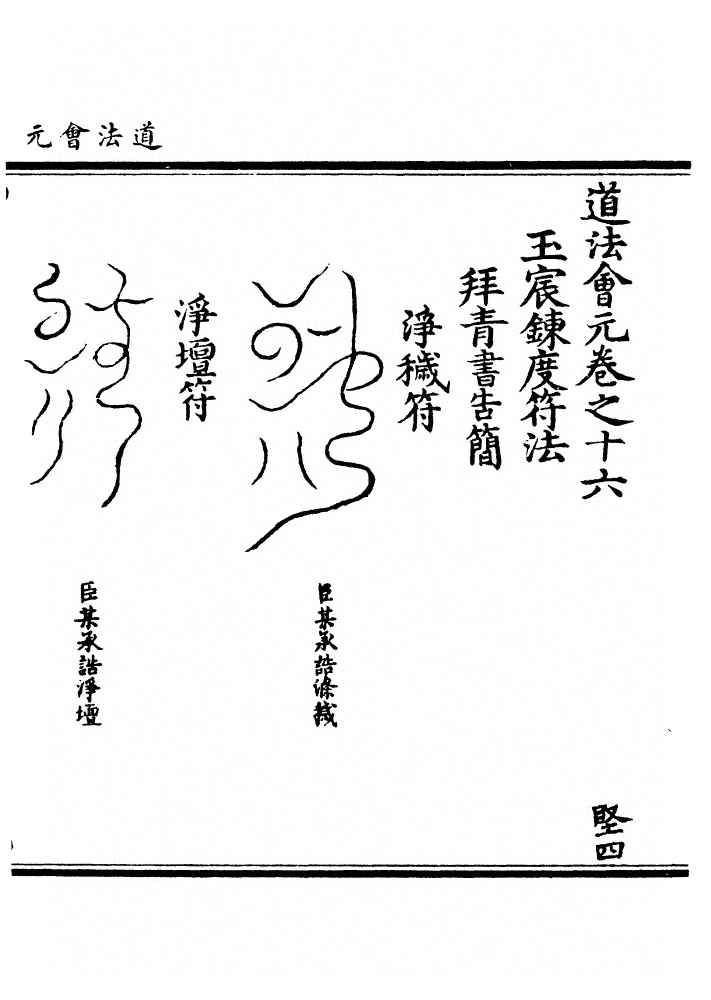 道法會元
道法會元卷之十六
堅四
玉宸鍊度符法
拜青書告簡
淨穢符
臣某承誥滌穢
淨壇符
臣某承誥淨壇